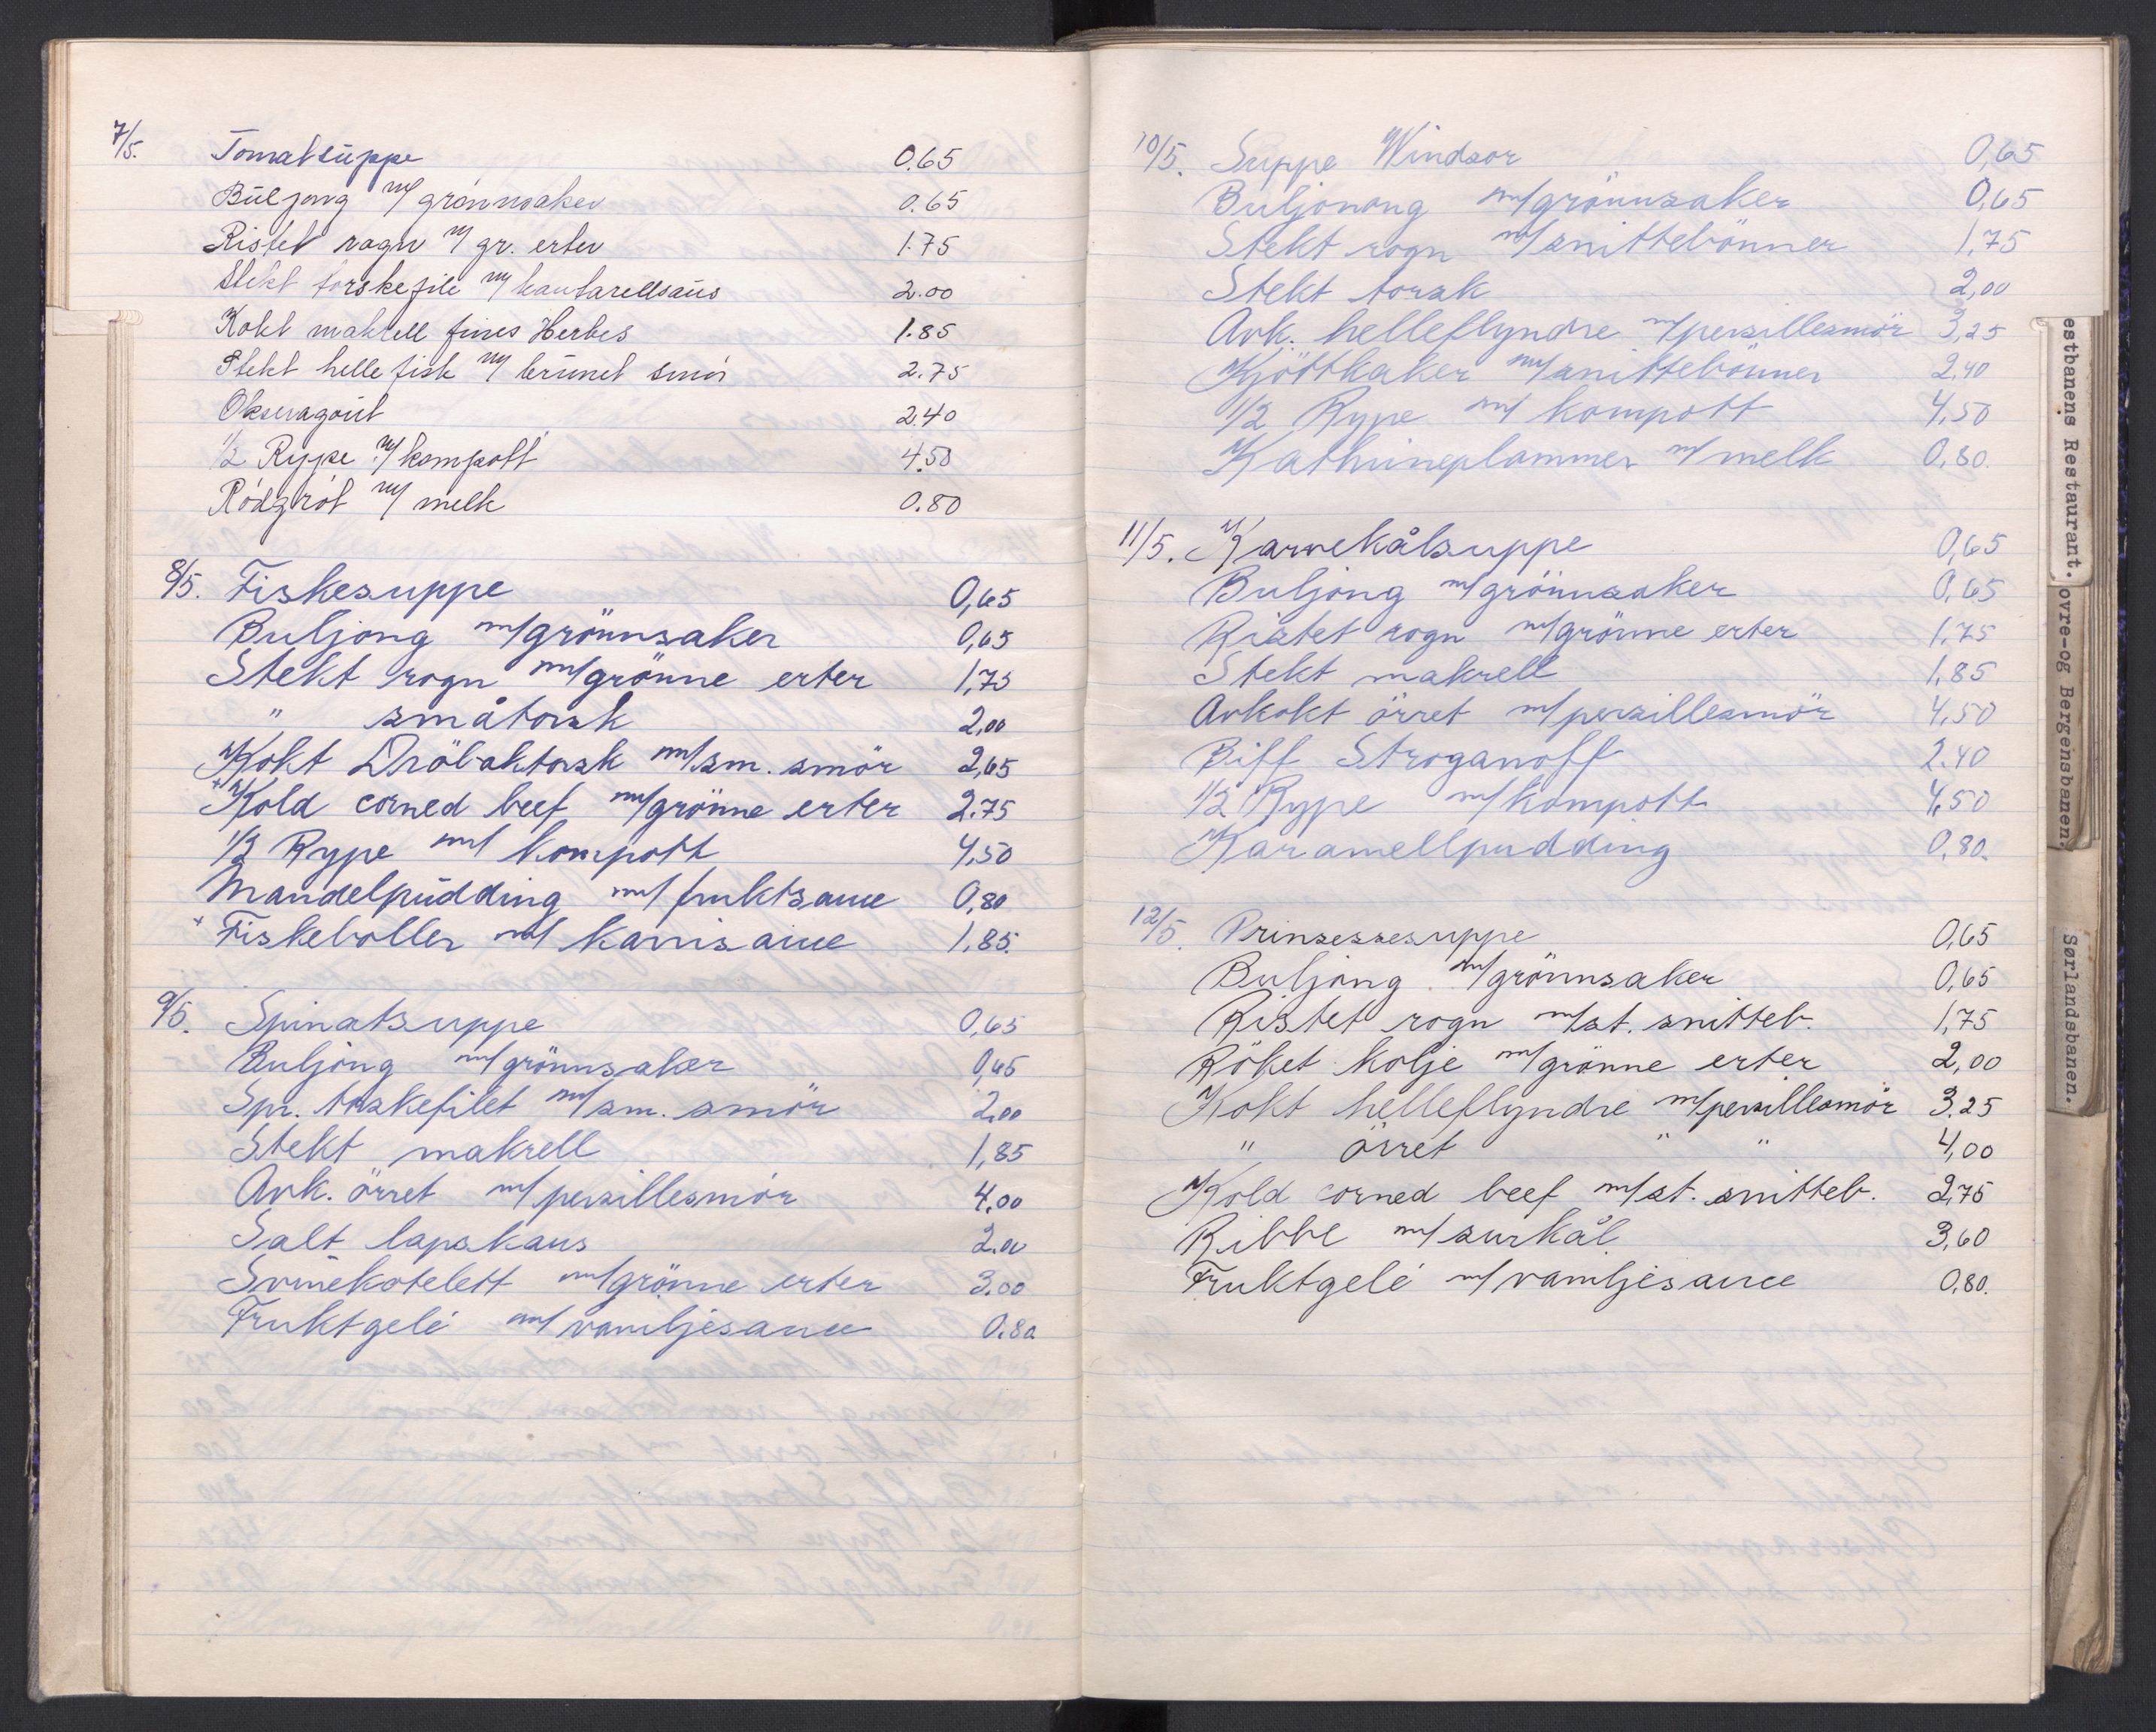 7/5. Tomatsuppe 0.65
Buljong m/ grønnsaker 0.65
Ristet rogn m/ gr. erter 1.75
Stekt torskefile m/ kantarellsaus 2.00
Kokt makrell fines Herbes 1.85
Stekt hellefisk m/ brunet smör 2.75
Okseragout 2.40
1/2 Rype m/ kompott 4.50
Rödgröt m/ melk 0.80
8/5. Fiskesuppe 0,65
Buljong m/grönnsaker 0,65
Stekt rogn m/grönne erter 1,75
" småtorsk 2,00
Kokt Dröbaktorsk m/sm. smör 2,65
+ Kold corned beef m/grönne erter 2.75
1/2 Rype m/ kompott 4,50
Mandelpudding m/ fruktsauce 0,80
+ Fiskeboller m/ karrisauce 1,85.
9/5. Spinatsuppe 0,65
Buljong m/grönnsaker 0,65
Spr. torskefilet m/sm. smör 2,00
Stekt makrell 1,85
Avk. örret m/persillesmör 4,00
Salt lapskaus 2.00
Svinekotelett m/grönne erter 3.00
Fruktgelé m/vaniljesauce 0.80
10/5. Suppe Windsor 0,65
Buljonong m/grönnsaker 0,65
Stekt rogn m/snittebönner 1,75
Stekt torsk 2,00
Avk. helleflyndre m/persillesmör 3,25
Kjöttkaker m/snittebönner 2,40
1/2 Rype m/ kompott 4,50
Kathrineplommer m/melk 0,80.
11/5. Karvekålsuppe 0,65
Buljong m/grönnsaker 0,65
Ristet rogn m/grönne erter 1,75
Stekt makrell 1,85
Avkokt örret m/persillesmör 4,50
Biff Stroganoff 2.40
1/2 Rype m/kompott 4,50
Karamellpudding 0,80.
12/5. Prinsessesuppe 0,65
Buljong m/grönnsaker 0,65
Ristet rogn m/st. snitteb. 1,75
Röket kolje m/grönne erter 2,00
Kokt helleflyndre m/persillesmör 3.25
" örret " " 4,00
Kold corned beef m/st. snitteb. 2,75
Ribbe m/surkål 3,60
Fruktgelé m/vaniljesauce 0,80.
estbanens Restaurant.
ovre-og Bergensbanen.
Sørlandsbanen.